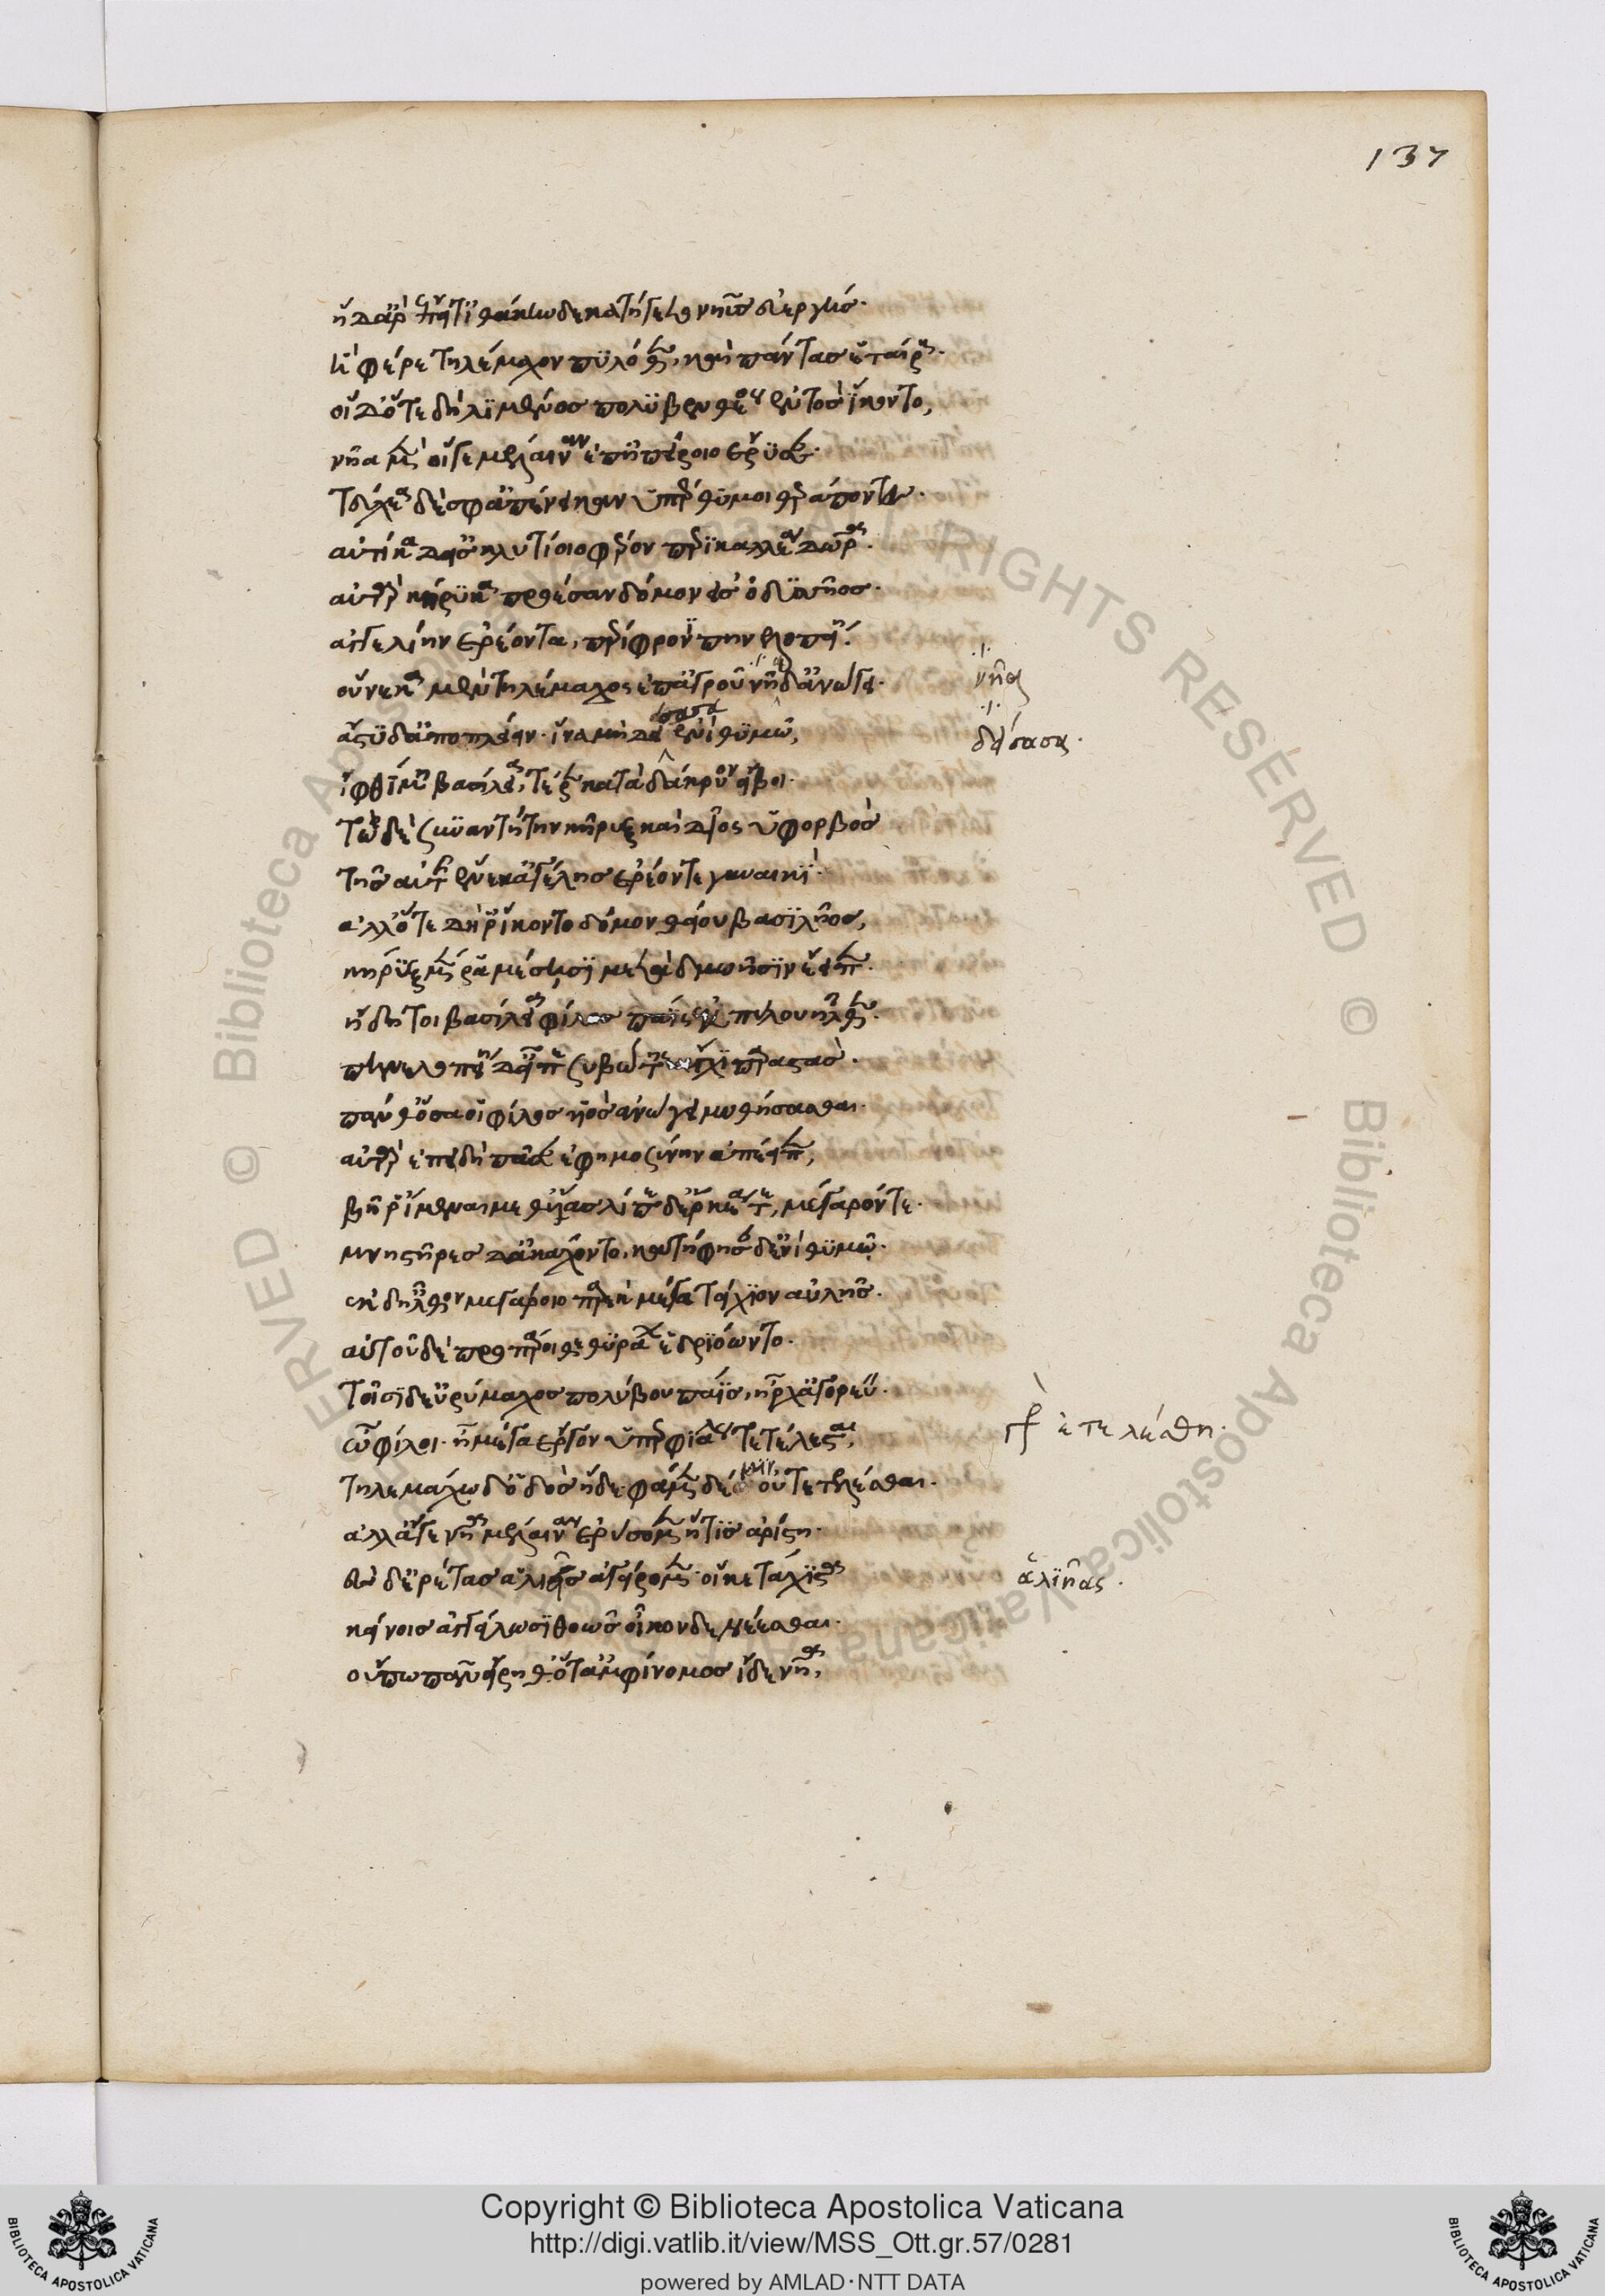 137
ἡ δ' ἄρ' ἔπειτ' ἰθάκηνδε κατήγετο νηῦς εὐεργὴς.
ἣ φέρε τηλέμαχον πυλόθεν, καὶ πάντας ἑταίρους.
οἱ δ' ὅτε δὴ λιμένος πολυβενθέος ἐντὸς ἵκοντο,
νῆα μὲν οἵγε μέλαιναν ἐπ' ἠπείροιο ἔρυσαν.
τεύχεα δέ σφ' ἀπένεικαν ὑπέρθυμοι θεράποντες.
αὐτίκα δ' ἐς κλυτίοιο φέρον περικαλλέα δῶρα.
αὐτὰρ κήρυκα πρόεσαν δόμον εἰς ὀδυσῆος.
ἀγγελίην ἐρέοντα, περίφρονι πηνελοπείῃ.
οὕνεκα μὲν τηλέμαχος ἐπ' ἀγροῦ νῆα δ' ἀνώγει.
νῆα
ἄστυδ' ἀποπλείειν. ἵνα μὴ δείσασα ἐνὶ θυμῷ,
δείσασα.
ἰφθίμη βασίλεια, τέρεν κατὰ δάκρυον εἴβοι.
τὼ δὲ συναντήτην κήρυξ καὶ δῖος ὑφορβὸς
τῆς αὐτῆς ἕνεκ' ἀγγελίης ἐρέοντε γυναικὶ.
ἀλλ' ὅτε δή ῥ' ἵκοντο δόμον θείου βασιλῆος,
κήρυξ μέν ῥα μέσῃσι μετὰ δμωῇσιν ἔειπεν.
ἤδη τοι βασίλεια φίλος παῖς ἐκ πύλου ἦλθεν.
πηνελοπείῃ δ' εἶπε συβώτης ἄγχι παραστὰς.
πάνθ' ὅσα οἱ φίλος υἱὸς ἀνώγει μυθήσασθαι.
αὐτὰρ ἐπειδὴ πᾶσαν ἐφημοσύνην ἀπέειπεν,
βῆ ῥ' ἴμεναι μεθ' ὕας λίπε δ' ἕρκεά τε, μέγαρόν τε.
μνηστῆρες δ' ἀκάχοντο, κατήφησαν δ' ἐνὶ θυμῷ.
ἐκ δ' ἦλθον μεγάροιο παρὲκ μέγα τειχίον αὐλῆς.
αὐτοῦ δὲ προπάροιθε θυράων ἑδριόωντο.
τοῖσι δ' εὐρύμαχος πολύβου παῖς, ἦρχ' ἀγορεύειν.
ὦ φίλοι. ἦ μέγα ἔργον ὑπερφιάλως τετέλεσται,
γρ ἐτελέσθη.
τηλεμάχῳ ὁδὸς ἥδε. φάμεν δέ οἱ οὐ τελέεσθαι.
ἀλλ' ἄγε νῆα μέλαιναν ἐρύσομεν ἥτις ἀρίστη.
ἐν δ' ἐρέτας ἁλιῆας ἀγείρομεν. οἵ κε τάχιστα
ἁλιῆας.
κείνοις ἀγγείλωσι θοῶς οἶκον δὲ νέεσθαι.
οὔπω πᾶν εἴρηθ' ὅτ' ἀμφίνομος ἴδε νῆα,
Copyright © Biblioteca Apostolica Vaticana
http://digi.vatlib.it/view/MSS_Ott.gr.57/0281
powered by AMLAD·NTT DATA